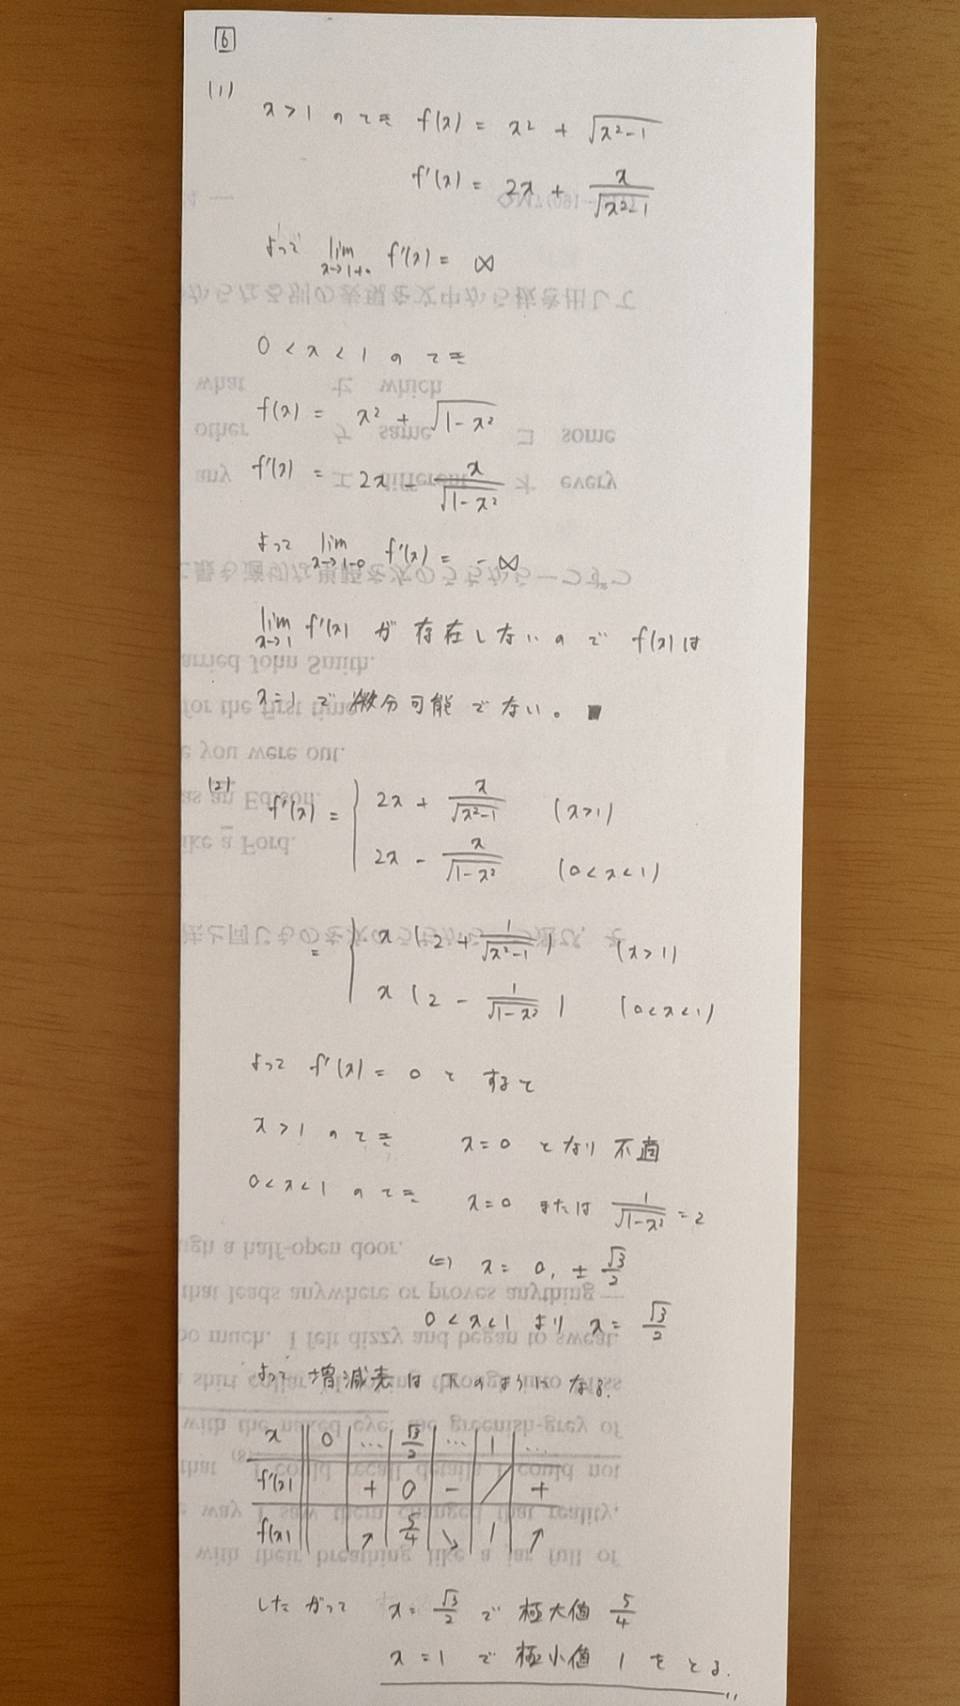 6
(1)
x>1 のとき f(x) = x² + √(x²-1)
f'(x) = 2x + x/√(x²-1)
よって lim x→1+0 f'(x) = ∞
0 < x < 1 のとき
f(x) = x² + √(1-x²)
f'(x) = 2x - x/√(1-x²)
よって lim x→1-0 f'(x) = -∞
lim x→1 f'(x) が 存在しないので f(x)は
x=1 で微分可能でない。■
(2) f'(x) = { 2x + x/√(x²-1) (x>1)
2x - x/√(1-x²) (0<x<1)
= { x (2 + 1/√(x²-1)) (x>1)
x (2 - 1/√(1-x²)) (0<x<1)
よって f'(x) = 0 と すると
x>1 のとき x=0 となり 不適
0<x<1 のとき x=0 または 1/√(1-x²) = 2
⇔ x = 0, ± √3/2
0<x<1 より x = √3/2
よって 増減表は 下のようになる.
x 0 … √3/2 … 1 …
f'(x) + 0 - ／ +
f(x) ↗ 5/4 ↘ 1 ↗
したがって x = √3/2 で 極大値 5/4
x = 1 で 極小値 1 をとる.